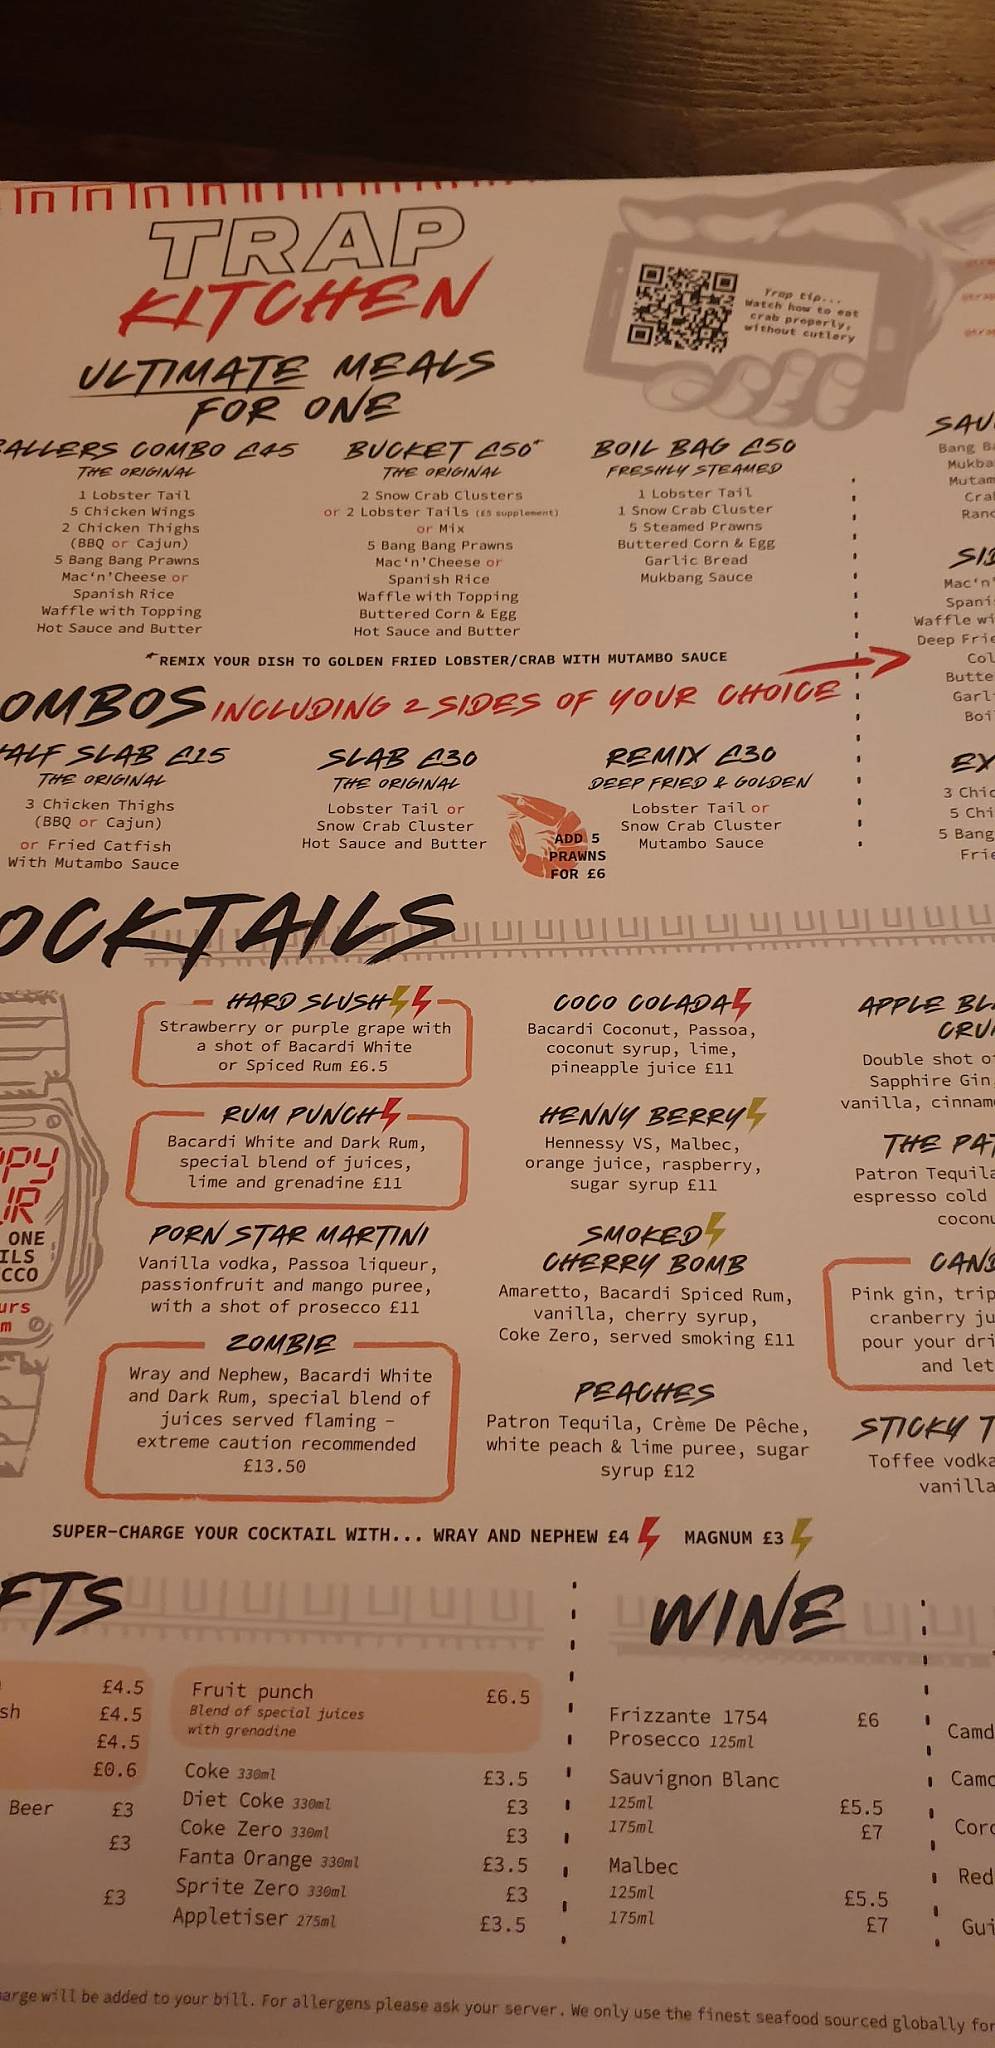 TRAP
KITCHEN
Trap tip...
Watch how to eat
crab properly,
without cutlery
ULTIMATE MEALS
FOR ONE
COMBO £45
THE ORIGINAL
1 Lobster Tail
5 Chicken Wings
2 Chicken Thighs
(BBQ or Cajun)
5 Bang Bang Prawns
Mac'n'Cheese or
Spanish Rice
Waffle with Topping
Hot Sauce and Butter
BUCKET £50*
THE ORIGINAL
2 Snow Crab Clusters
or 2 Lobster Tails (£5 supplement)
or Mix
5 Bang Bang Prawns
Mac'n'Cheese or
Spanish Rice
Waffle with Topping
Buttered Corn & Egg
Hot Sauce and Butter
BOIL BAG £50
FRESHLY STEAMED
1 Lobster Tail
1 Snow Crab Cluster
5 Steamed Prawns
Buttered Corn & Egg
Garlic Bread
Mukbang Sauce
*REMIX YOUR DISH TO GOLDEN FRIED LOBSTER/CRAB WITH MUTAMBO SAUCE
OMBOS INCLUDING 2 SIDES OF YOUR CHOICE
SLAB £15
THE ORIGINAL
3 Chicken Thighs
(BBQ or Cajun)
or Fried Catfish
With Mutambo Sauce
SLAB £30
THE ORIGINAL
Lobster Tail or
Snow Crab Cluster
Hot Sauce and Butter
ADD 5
PRAWNS
FOR £6
REMIX £30
DEEP FRIED & GOLDEN
Lobster Tail or
Snow Crab Cluster
Mutambo Sauce
SAU
Bang B
Mukba
Mutam
Cra
Ran
SI
Mac'n'
Spani
Waffle wi
Deep Frie
Col
Butte
Garl
Boi
EX
3 Chic
5 Chi
5 Bang
Frie
OCKTAILS
PPY
UR
ONE
ILS
CCO
urs
m
HARD SLUSH
Strawberry or purple grape with
a shot of Bacardi White
or Spiced Rum £6.5
RUM PUNCH
Bacardi White and Dark Rum,
special blend of juices,
lime and grenadine £11
PORN STAR MARTINI
Vanilla vodka, Passoa liqueur,
passionfruit and mango puree,
with a shot of prosecco £11
ZOMBIE
Wray and Nephew, Bacardi White
and Dark Rum, special blend of
juices served flaming –
extreme caution recommended
£13.50
COCO COLADA
Bacardi Coconut, Passoa,
coconut syrup, lime,
pineapple juice £11
HENNY BERRY
Hennessy VS, Malbec,
orange juice, raspberry,
sugar syrup £11
SMOKED
CHERRY BOMB
Amaretto, Bacardi Spiced Rum,
vanilla, cherry syrup,
Coke Zero, served smoking £11
PEACHES
Patron Tequila, Crème De Pêche,
white peach & lime puree, sugar
syrup £12
APPLE BL
CRU
Double shot o
Sapphire Gin
vanilla, cinnam
THE PA
Patron Tequila
espresso cold
coconu
CAN
Pink gin, trip
cranberry ju
pour your dri
and let
STICKY T
Toffee vodka
vanilla
SUPER-CHARGE YOUR COCKTAIL WITH... WRAY AND NEPHEW £4 MAGNUM £3
FTS
£4.5
sh £4.5
£4.5
£0.6
Beer £3
£3
£3
Fruit punch £6.5
Blend of special juices
with grenadine
Coke 330ml £3.5
Diet Coke 330ml £3
Coke Zero 330ml £3
Fanta Orange 330ml £3.5
Sprite Zero 330ml £3
Appletiser 275ml £3.5
WINE
Frizzante 1754 £6
Prosecco 125ml
Sauvignon Blanc
125ml £5.5
175ml £7
Malbec
125ml £5.5
175ml £7
Camd
Camd
Coro
Red
Gui
arge will be added to your bill. For allergens please ask your server. We only use the finest seafood sourced globally for